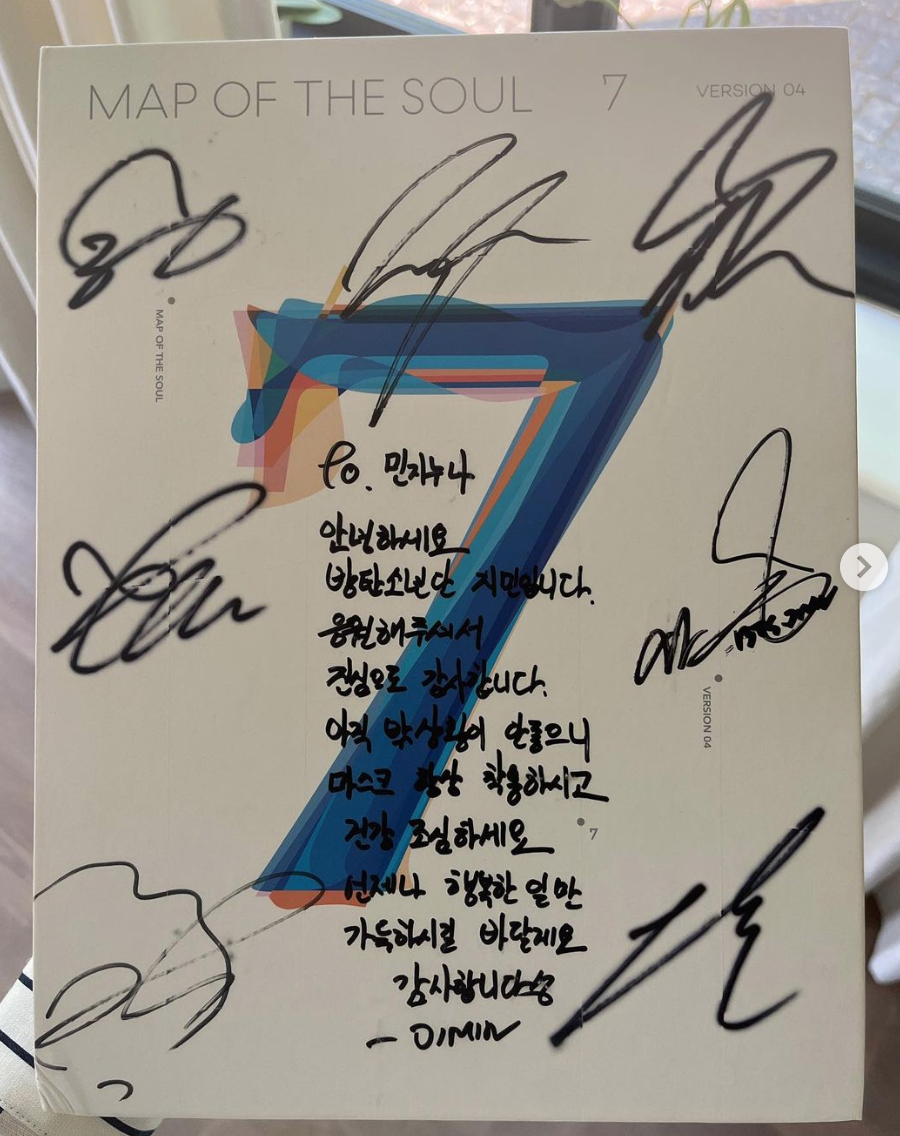 MAP OF THE SOUL 7 VERSION 04
MAP OF THE SOUL
To. 민지누나
안녕하세요
방탄소년단 지민입니다.
응원해주셔서
진심으로 감사합니다.
아직 밖상황이 안좋으니
마스크 항상 착용하시고
건강 조심하세요
언제나 행복한 일만
가득하시길 바랄게요
감사합니다
- JIMIN
VERSION 04
7